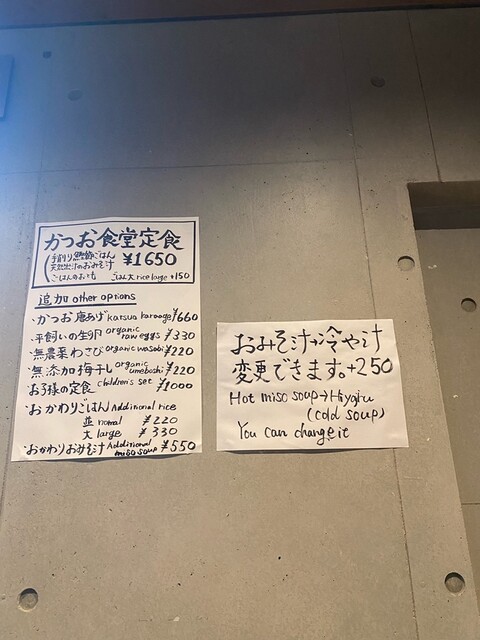 かつお食堂定食
手削り鰹節ごはん
天然出汁のおみそ汁
ごはんのおとも
¥1650
ごはん大 rice large +150
追加 other options
・かつお唐あげ katsuo karaage ¥660
・平飼いの生卵 organic raw eggs ¥330
・無農薬わさび organic wasabi ¥220
・無添加梅干し organic umeboshi ¥220
・お子様の定食 children's set ¥1000
・おかわりごはん Additional rice
並 nomal ¥220
大 large ¥330
・おかわりおみそ汁 Additional miso soup ¥550
おみそ汁→冷や汁
変更できます。+250
Hot miso soup→Hiyajiru
(cold soup)
You can change it